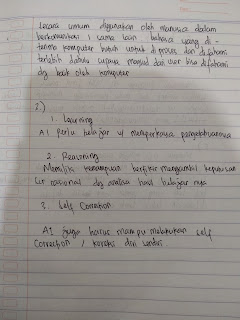 secara umum digunakan oleh manusia dalam
berkomunikasi 1 sama lain bahasa yang di-
terima komputer butuh untuk di proses dan difahami
terlebih dahulu supaya maksud dari user bisa difahami
dg baik oleh komputer
2.)
1. Learning
AI perlu belajar u/ memperkaya pengetahuannya
2. Reasoning
Memiliki kemampuan berfikir mengambil keputusan
scr rasional dg analisa hasil belajar nya
3. Self Correction
AI juga harus mampu melakukan self
Correction / koreksi diri sendiri